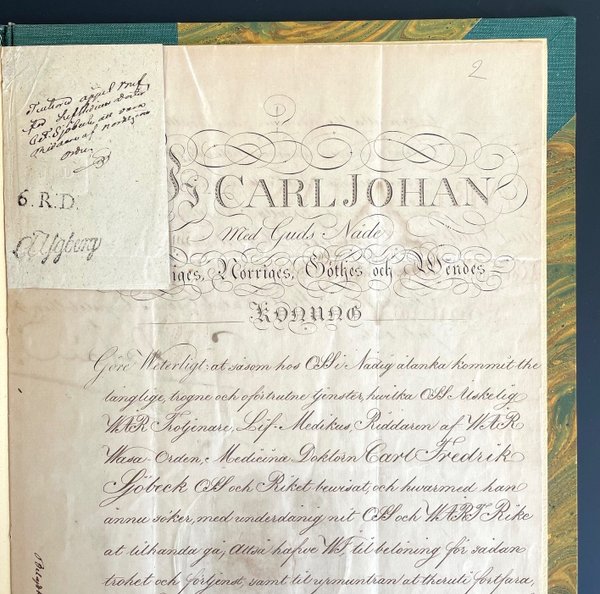 2
för Lif Medicus Doctor
C. F. Sjöbeck att vara
Riddare af Nordstjerne
Orden
6. R.D.
Wi CARL JOHAN
Med Guds Nåde
riges, Norriges, Göthes och Wendes
KONUNG
Göre Weterligt: at såsom hos OSS i Nådig åtanka kommit the
långlige, trogne och oförtrutne tjenster, hwilka OSS Älskelig
WÅR Trotjenare, Lif-Medikus, Riddaren af WÅR
Wasa-Orden, Medicinæ Doktorn Carl Fredrik
Sjöbeck OSS och Riket bewisat, och hwarmed han
ännu söker, med underdånig nit OSS och WÅRT Rike
at tilhanda gå, Altså hafve WI, til belöning för sådan
trohet och förtjenst, samt til upmuntran at theruti fortfara,